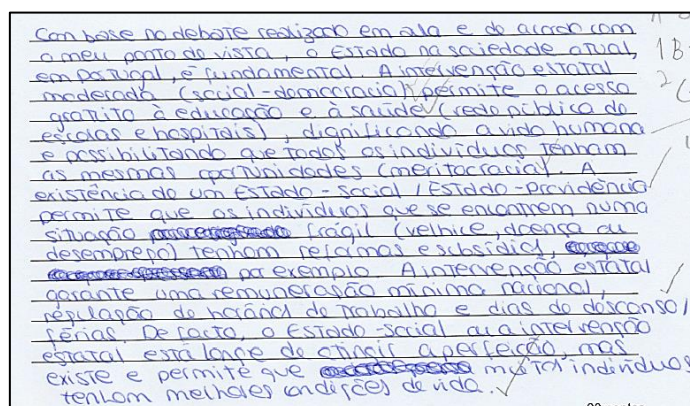 Com base no debate realizado em aula e de acordo com
o meu ponto de vista, o Estado na sociedade atual,
em Portugal, é fundamental. A intervenção estatal
moderada (social-democracia) permite o acesso
gratuito à educação e à saúde (rede pública de
escolas e hospitais), dignificando a vida humana
e possibilitando que todos os indivíduos tenham
as mesmas oportunidades (meritocracia). A
existência de um Estado-Social / Estado-Providência
permite que os indivíduos que se encontrem numa
situação frágil (velhice, doença ou
desemprego) tenham reformas e subsídios,
por exemplo. A intervenção estatal
garante uma remuneração mínima nacional,
regulação de horários de trabalho e dias de descanso/
férias. De facto, o Estado-Social ou a intervenção
estatal está longe de atingir a perfeição, mas
existe e permite que muitos indivíduos
tenham melhores condições de vida.